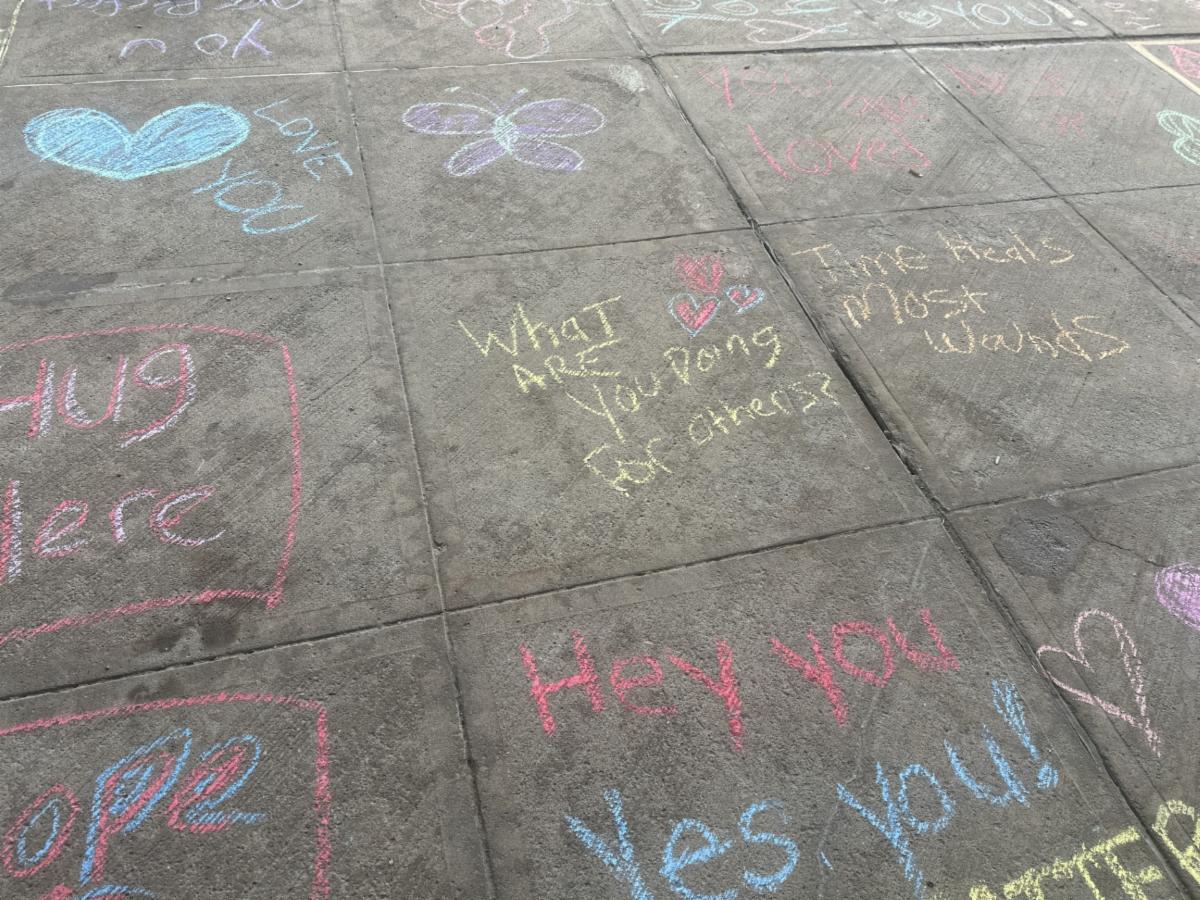 n ok
YOU
LOVE
YOU
You are
loved
Hug
Here
WhaT
ARE
You Doing
for others?
Time Heals
Most
Wounds
ope
Hey you
Yes, you!